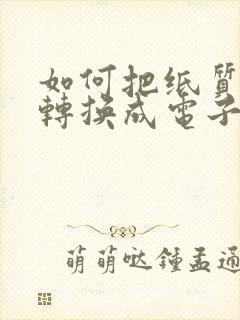 如何把纸質
轉換成電子
萌萌哒鍾孟通